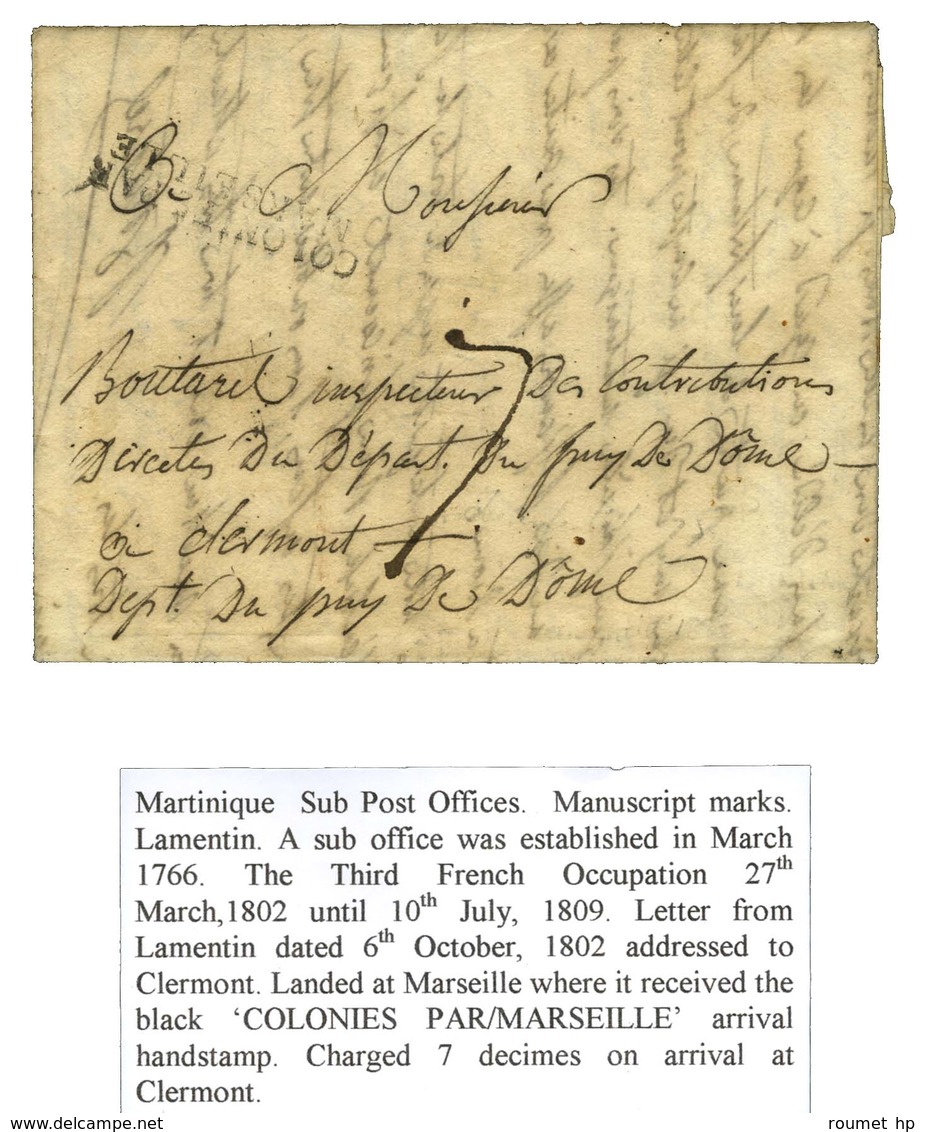 A Monsieur
COLONIES PAR
MARSEILLE
Boutarel inspecteur Des Contributions
Directes Du Départ. Du puy De Dôme
a clermont
Dept. Du puy De Dôme
7
Martinique Sub Post Offices. Manuscript marks.
Lamentin. A sub office was established in March
1766. The Third French Occupation 27th
March,1802 until 10th July, 1809. Letter from
Lamentin dated 6th October, 1802 addressed to
Clermont. Landed at Marseille where it received the
black ‘COLONIES PAR/MARSEILLE’ arrival
handstamp. Charged 7 decimes on arrival at
Clermont.
roumet hp